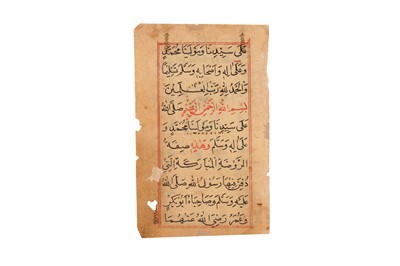 على سيدنا ومولانا محمد و
على اله واصحابه وسلم تسليما
والحمد لله رب العلمين
بسم الله الرحمن الرحيم صلى الله
على سيدنا ومولانا محمد و
على اله وسلم وهذه صفة
الروضة المباركة التي
دفن فيها رسول الله صلى الله
عليه وسلم وصاحباه ابو بكر
وعمر رضي الله عنهما